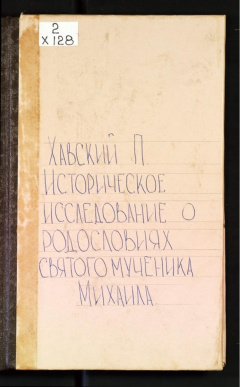 2
X 128
ХАВСКИЙ П
ИСТОРИЧЕСКОЕ
ИССЛЕДОВАНИЕ О
РОДОСЛОВИЯХ
СВЯТОГО МУЧЕНИКА
МИХАИЛА